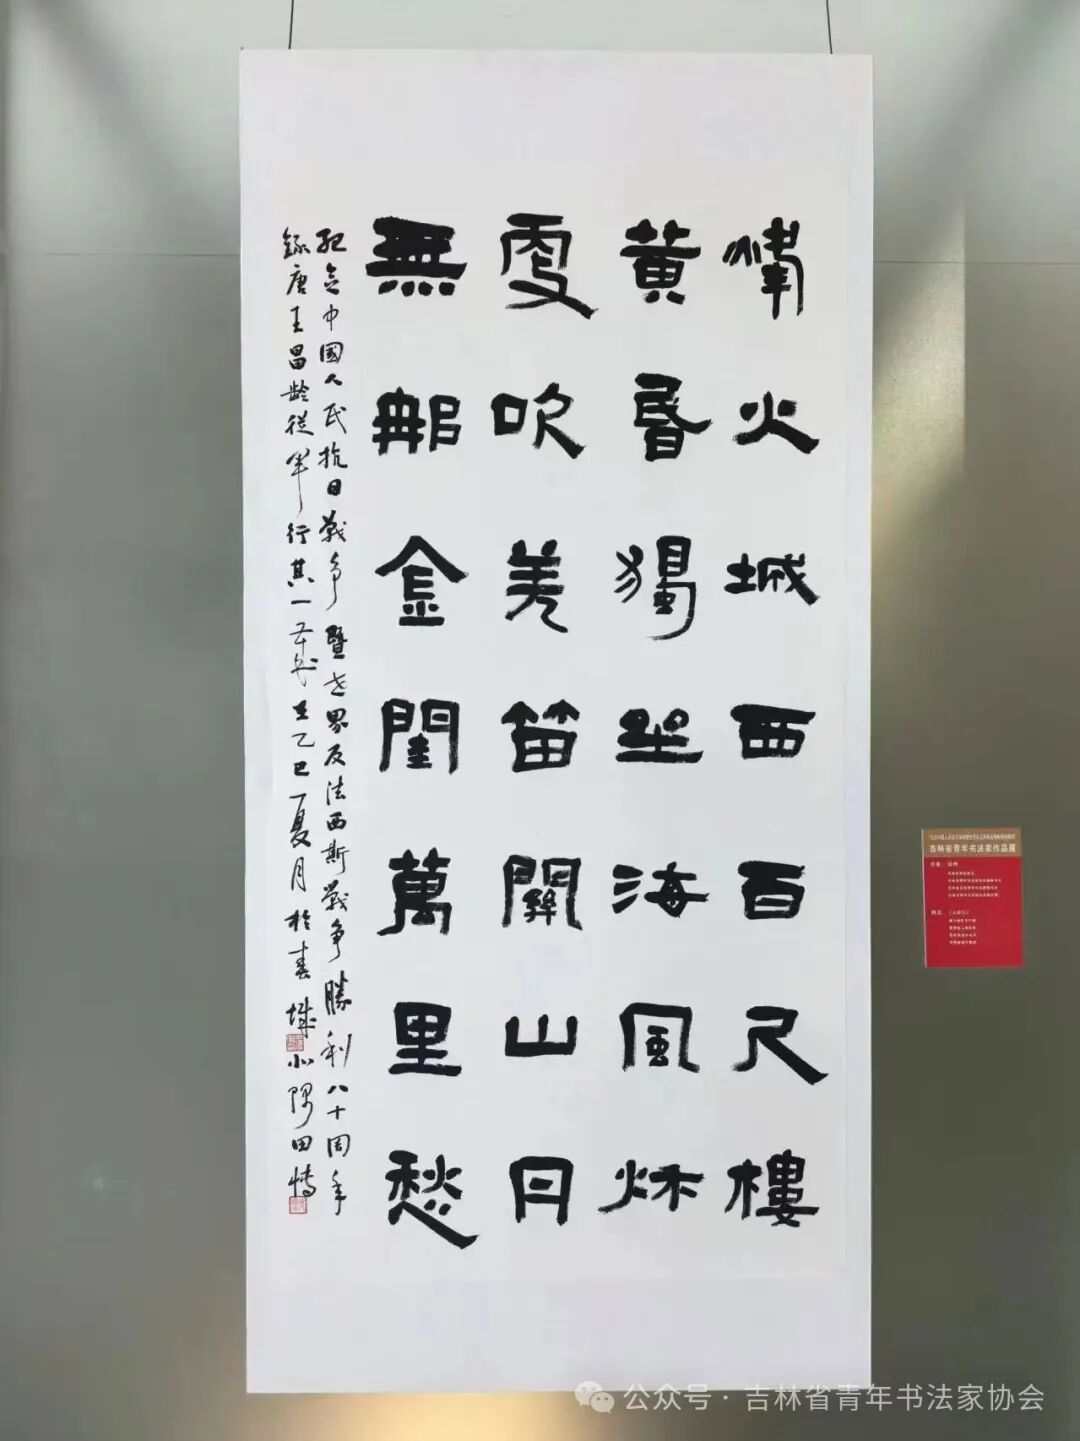 㷭火城西百尺樓
黃昏獨坐海風秌
更吹羌笛關山月
無那金閨萬里愁
紀念中國人民抗日戰爭暨世界反法西斯戰爭勝利八十周年
錄唐王昌齡從軍行其一 歲在乙巳夏月於春城小隅田博
吉林省青年书法家作品展
公众号 · 吉林省青年书法家协会